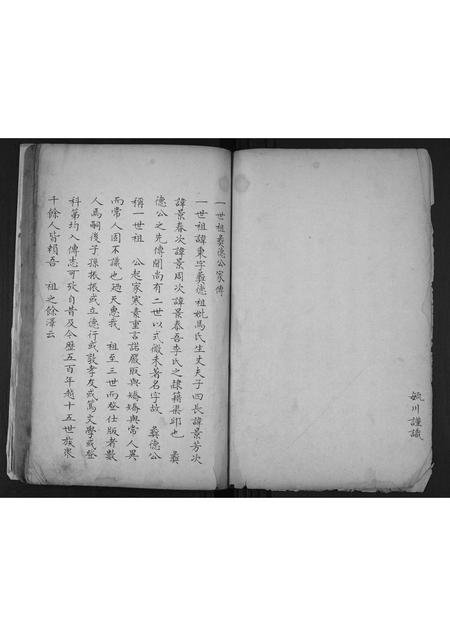 毓川謹識
一世祖彝德公家傳
一世祖諱秉字彝德祖妣馬氏生丈夫子四長諱景芳次
諱景春次諱景周次諱景泰吾李氏之隸籍渠邱也 彝
德公之先傳聞尚有二世以式微未著名字故 彝德公
稱一世祖 公起家寒素重言諾嚴取與矯矯與常人異
而常人固不識也迺天惠我 祖至三世而登仕版者數
人焉嗣後子孫振振或立德行或敦孝友或篤文學或登
科第均入傳志可攷自昔及今歷五百年越十五世族衆
千餘人皆賴吾 祖之餘澤云